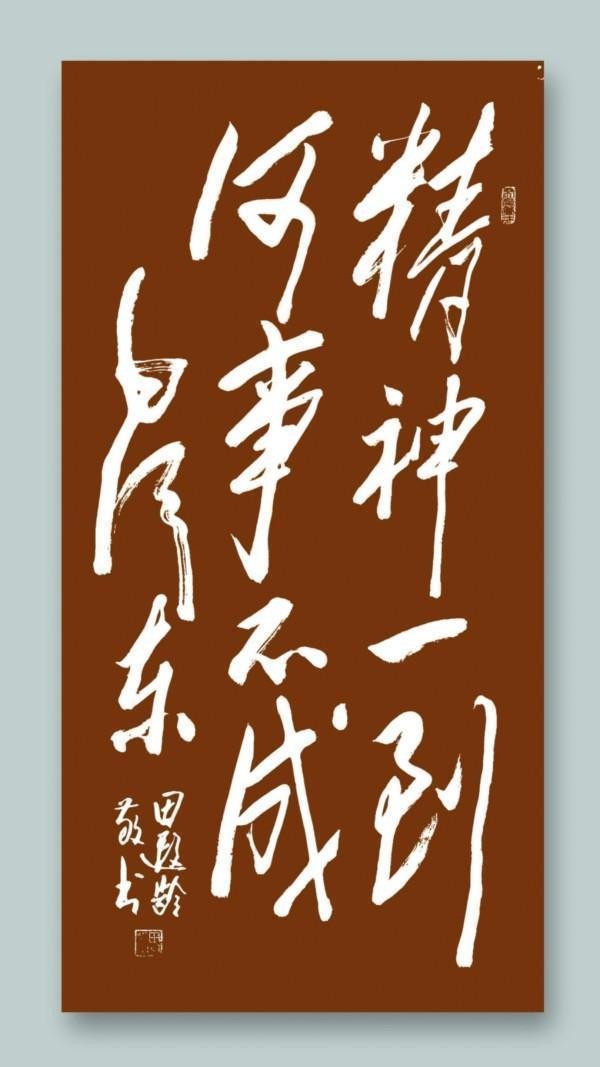 精神一到
何事不成
毛泽东
田遐龄
敬书